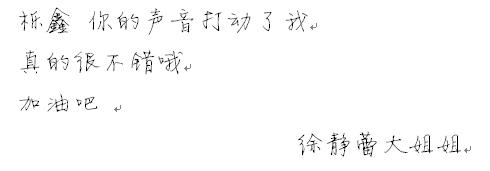 栎鑫 你的声音打动了我
真的很不错哦
加油吧
徐静蕾大姐姐